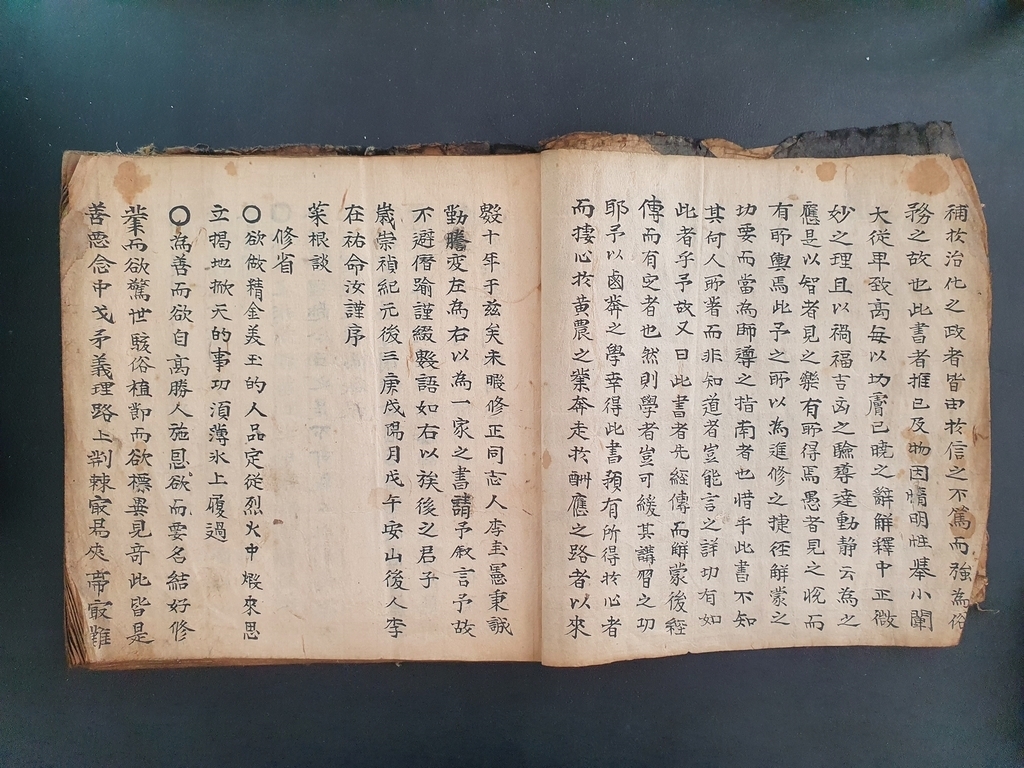 補於治化之政者皆由於信之不篤而強為俗
務之故也此書者推已及物因情明性擧小闡
大從卑致高每以功膚已曉之辭解釋中正微
妙之理且以禍福吉凶之驗導達動静云為之
應是以智者見之樂有所得焉愚者見之恱而
有所輿焉此予之所以為進修之捷徑解蒙之
功要而當為師導之指南者也惜乎此書不知
其何人所著而非知道者豈能言之詳功有如
此者乎予故又曰此書者先經傳而解蒙後經
傳而有定者也然則學者豈可緩其講習之功
耶予以鹵莽之學幸得此書頗有所得於心者
而捿心於黄農之業奔走於酬應之路者以來
數十年于兹矣未暇修正同志人李圭憲秉誠
勤騰変左為右以為一家之書請予敘言予故
不避僭踰謹綴數語如右以族後之君子
歲崇禎紀元後三庚戌陽月戊午安山後人李
在祐命汝謹序
菜根談
修省
〇欲做精金美玉的人品定從烈火中煆來思
立揭地掀天的事功湏薄氷上履過
〇為善而欲自高勝人施恩欲而要名結好修
業而欲驚世駭俗植節而欲標異見奇此皆是
善念中戈矛義理路上荆棘最易夾帶最難